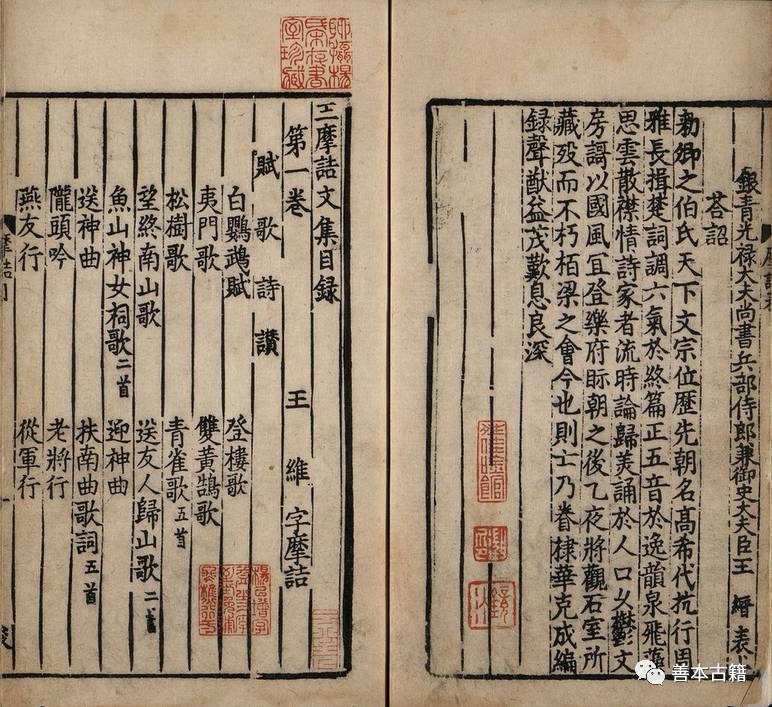 銀青光禄大夫尚書兵部侍郎兼御史大夫臣王 縉 表
荅詔
勑卿之伯氏天下文宗位歴先朝名髙希代抗行周
雅長揖楚詞調六氣於終篇正五音於逸韻泉飛藻
思雲散襟情詩家者流時論歸羙誦於人口乆鬱文
房謌以國風冝登樂府眎朝之後乙夜將觀石室所
藏殁而不朽栢梁之會今也則士乃眷棣華克成編
録聲猷益茂歎息良深
王摩詰文集目録
第一卷 王 維 字摩詰
賦 歌 詩 讃
白鸚鵡賦 登樓歌
夷門歌 雙黄鵠歌
松樹歌 青雀歌五首
望終南山歌 送友人歸山歌二首
魚山神女祠歌二首 迎神曲
送神曲 扶南曲歌詞五首
隴頭吟 老將行
燕友行 從軍行
善本古籍